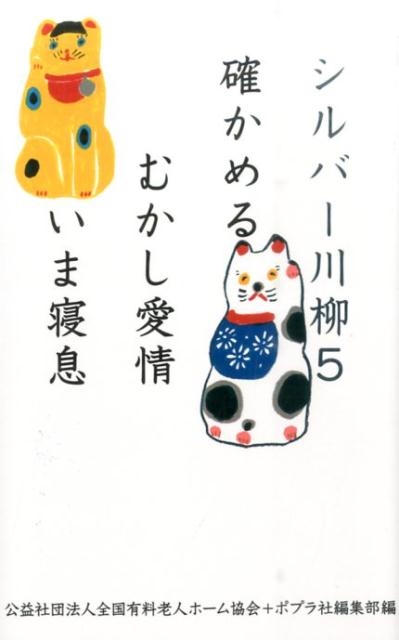 シルバー川柳5
確かめる
むかし愛情
いま寝息
公益社団法人全国有料老人ホーム協会＋ポプラ社編集部編